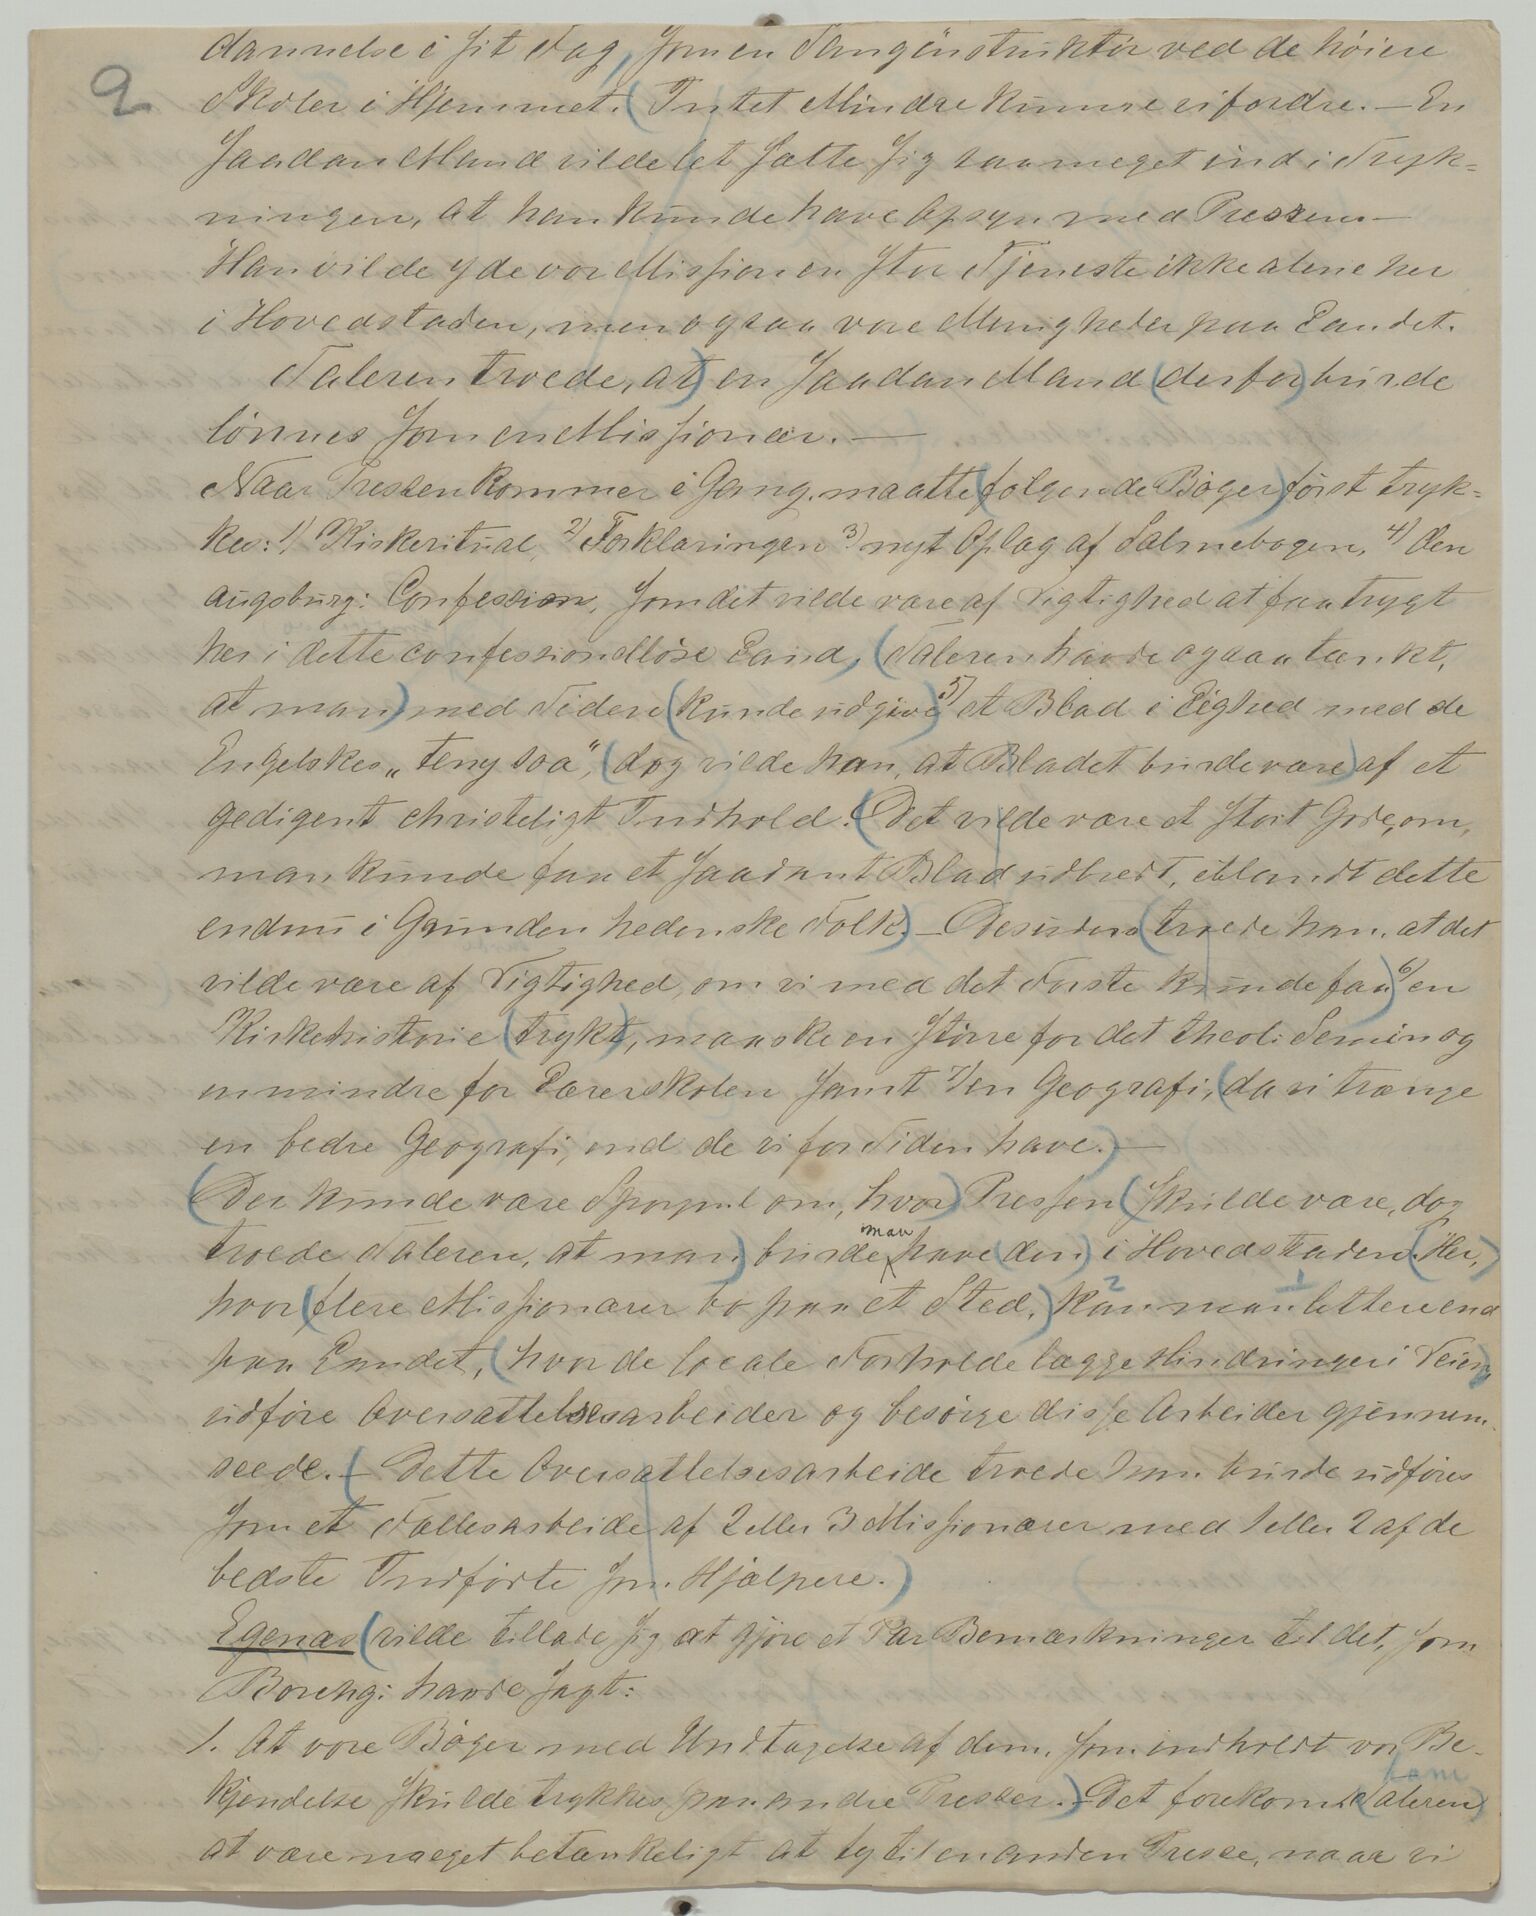 9
dannelse i sit Fag, som en Sanginstruktör ved de höiere
Skoler i Hjemmet. (Intet Mindre kunne vi fordre. — En
saadan Mand vilde let sætte sig saa meget ind i Tryk-
ningen, at han kunde have Opsyn med Pressen. —
Han vilde yde vor Mission en stor Tjeneste ikke alene her
i Hovedstaden, men ogsaa vore Menigheder paa Landet.
Taleren troede, at) en saadan Mand (derfor) burde
lönnes som en Missionær. —
Naar Pressen kommer i Gang, maatte (følgende Bøger) först tryk-
kes: 1) Kirkeritual, 2) Forklaringen 3) nyt Oplag af Salmebogen, 4) den
augsburg: Confession, som det vilde være af Vigtighed at faa trygt
her i dette confessionslöse Land, (Taleren havde ogsaa tænkt,
at man) med Tiden (kunde udgive 5) et Blad i Lighed med de
Engelskes „teny soa“, (dog vilde han, at Bladet burde være) af et
gedigent christeligt Indhold. (Det vilde være et stort Gode, om,
man kunde faa et saadant Blad udbredt, iblandt dette
endnu i Grunden hedenske Folk) — Desuden (troede han, at det
vilde være af Vigtighed, om vi med det Første kunde faa) 6) en
Kirkehistorie (trykt), maaske en större for det theol: Semin og
en mindre for Lærerskolen samt 7) en Geografi, (da vi trænge
en bedre Geografi, end de vi for Tiden have.) —
(Der kunde være Spørgsml om, hvor) Pressen (skulde være, dog
troede Taleren, at man) burde man have (den) i Hovedstaden. (Her,)
hvor (flere Missionærer bo paa et Sted,) kan 2 man 1 lettere end
paa Landet, (hvor de locale Forholde lægge Hindringer i Veien)
udføre Oversættelsesarbeider og besörge disse Arbeider gjennem-
seede. (— Dette Oversættelsesarbeide troede han burde udføres
som et Fællesarbeide af 2 eller 3 Missionærer med 1 eller 2 af de
bedste Indfødte som Hjælpere.)
Egenæs (vilde tillade sig at gjøre et Par Bemærkninger til det, som
Borchg: havde sagt:
1. At vore Bøger med Undtagelse af dem, som indholdt vor Be-
kjendelse skulde trykkes paa andre Presser.) Det forekom (Taleren) ham
at være meget betænkeligt at ty til en anden Presse, naar vi